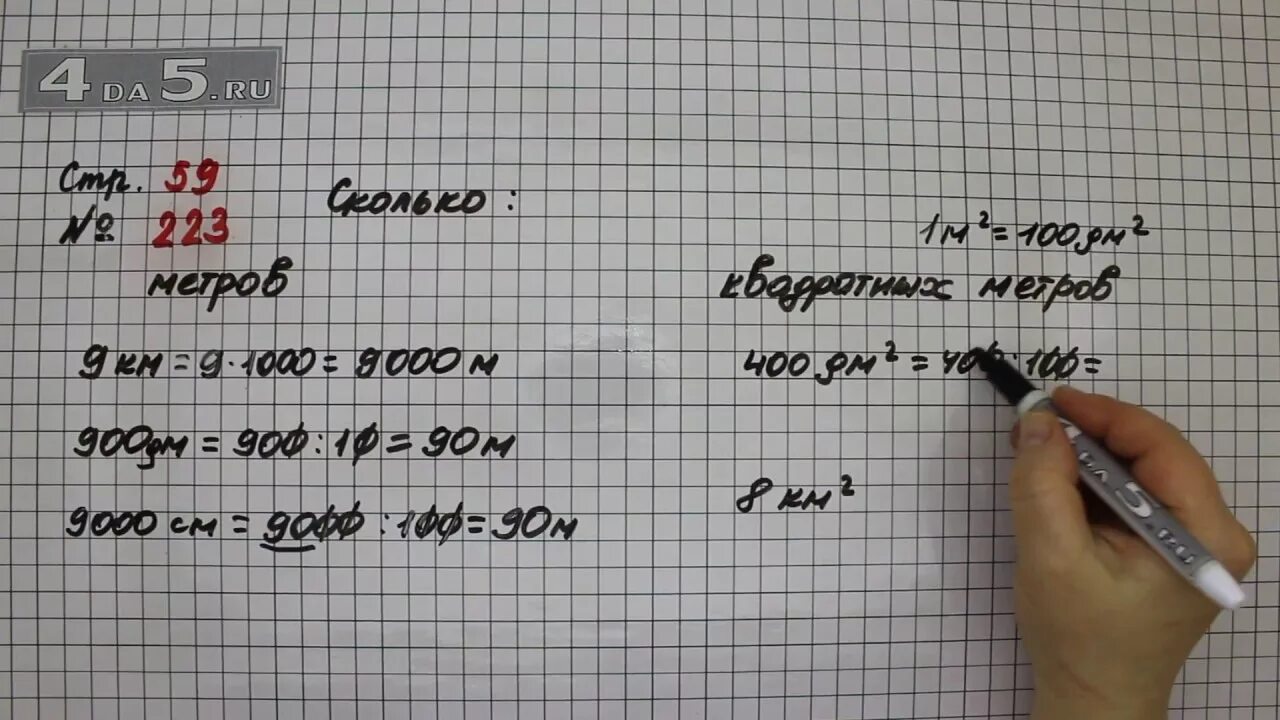 4DA5.RU
Стр. 59
№ 223
Сколько :
метров
9 км = 9·1000 = 9000 м
900 дм = 900 : 10 = 90 м
9000 см = 9000 : 100 = 90 м
1 м² = 100 дм²
квадратных метров
400 дм² = 400 : 100 =
8 км²
DA5.RU